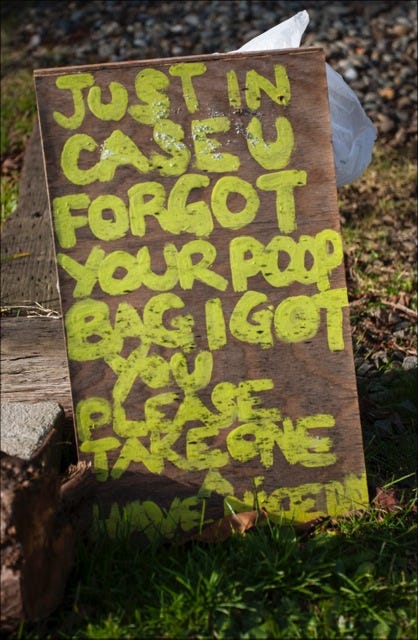 JUST IN
CASE U
FORGOT
YOUR POOP
BAG I GOT
YOU
PLEASE
TAKE ONE
HAVE A